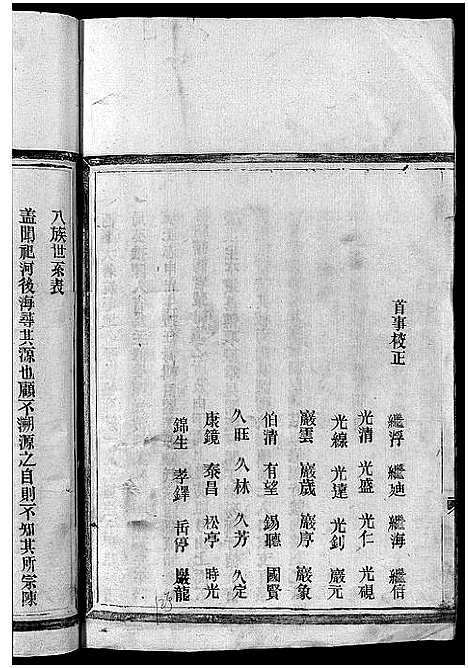 首事校正
繼浮 繼迪 繼海 繼信
光清 光盛 光仁 光硯
光線 光達 光釗 巖元
巖雲 巖歲 巖序 巖象
伯清 有望 錫聰 國賢
久旺 久林 久芳 久定
康鏡 泰昌 松亭 時光
錦生 孝鐸 岳停 巖龍
八族世系表
盖聞祀河後海尋其源也顧不溯源之自則不知其所宗陳